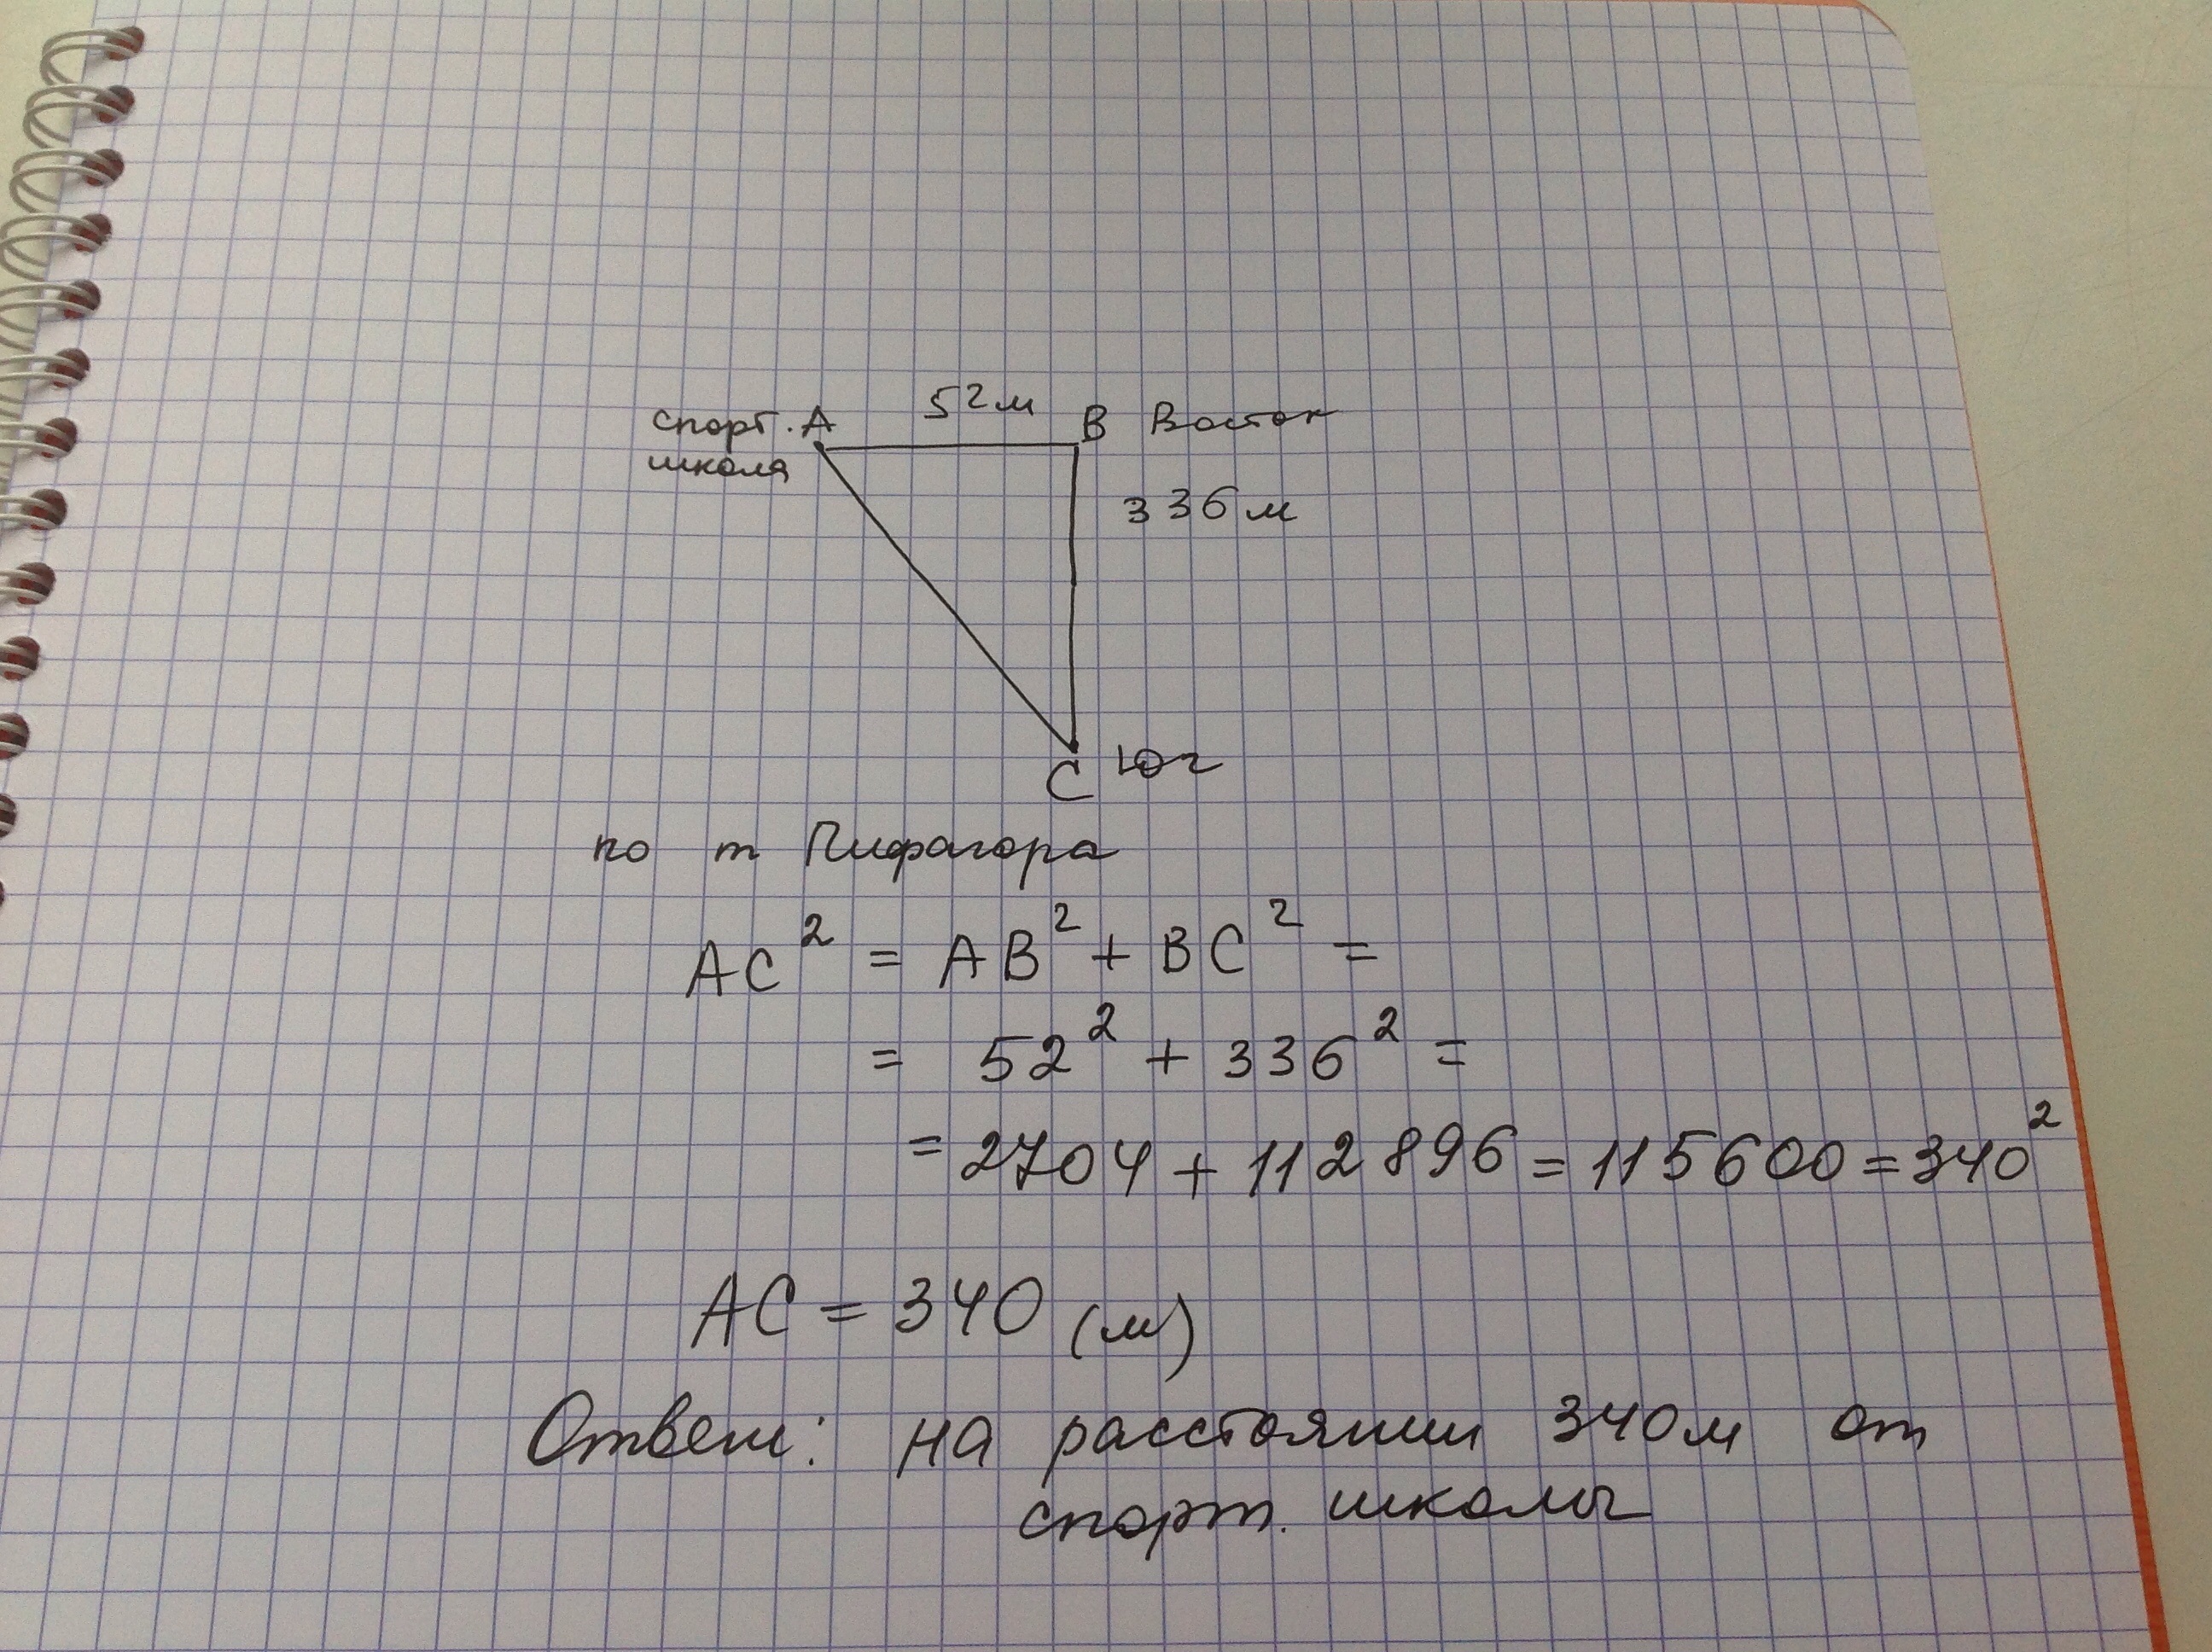 52м
спорт. А
В Восток
школа
336 м
С Юг
по т Пифагора
AC² = AB² + BC² =
= 52² + 336² =
= 2704 + 112896 = 115600 = 340²
AC = 340 (м)
Ответ: на расстоянии 340м от
спорт. школы